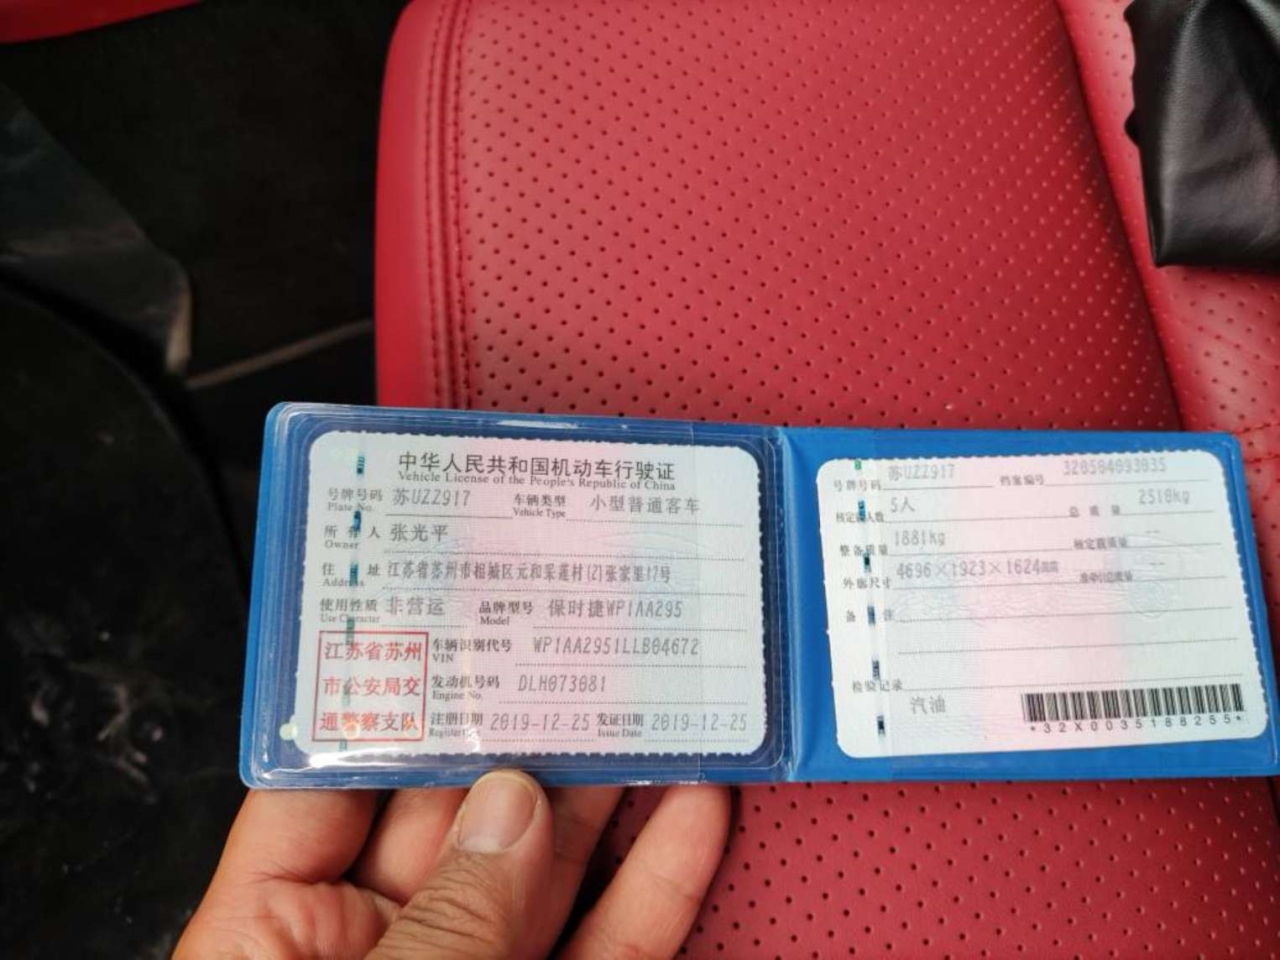 中华人民共和国机动车行驶证
Vehicle License of the People's Republic of China
号牌号码 苏UZZ917 车辆类型 小型普通客车
Plate No. Vehicle Type
所有人 张光平
Owner
住址 江苏省苏州市相城区元和采莲村(2)张家里17号
Address
使用性质 非营运 品牌型号 保时捷WP1AA295
Use Character Model
江苏省苏州
市公安局交
通警察支队
车辆识别代号 WP1AA2951LLB04672
VIN
发动机号码 DLH073081
Engine No.
注册日期 2019-12-25 发证日期 2019-12-25
Register Date Issue Date
号牌号码 苏UZZ917 档案编号 320584093035
核定载人数 5人 总质量 2510kg
整备质量 1881kg 核定载质量 --
外廓尺寸 4696×1923×1624mm 准牵引总质量 --
备注
检验记录
汽油
*32X0035188255*